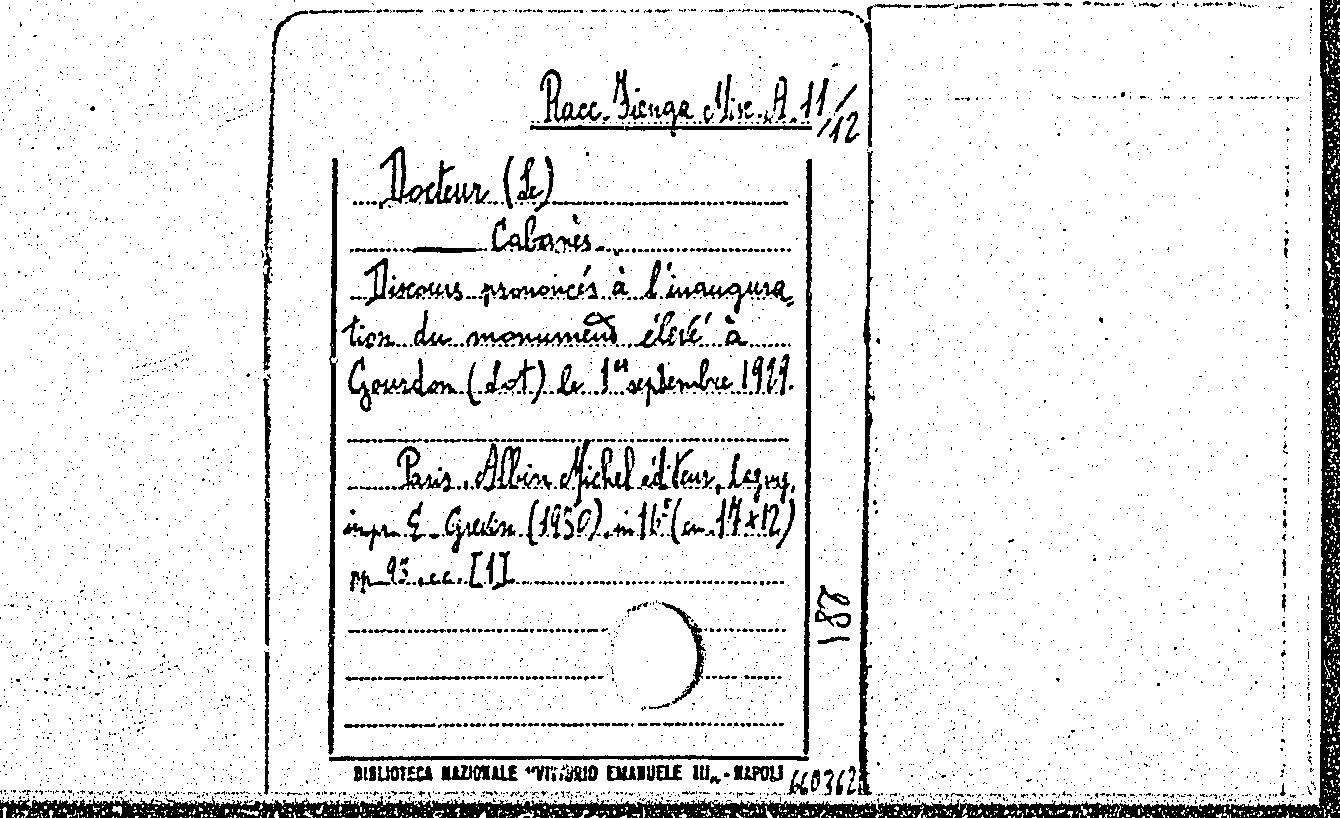 Racc. Fienga Misc. A. 11/12
Docteur (Le)
Cabanès.
Discours prononcés à l'inaugura,
tion du monument élevé à
Gourdon (Lot) le 1er septembre 1929.
Paris. Albin Michel éditeur, Lagny,
impr. E. Grevin (1930). in 16° (cm. 17x12)
pp. 93. c.c. [1].
187
BIBLIOTECA NAZIONALE "VITTORIO EMANUELE III" - NAPOLI
660362